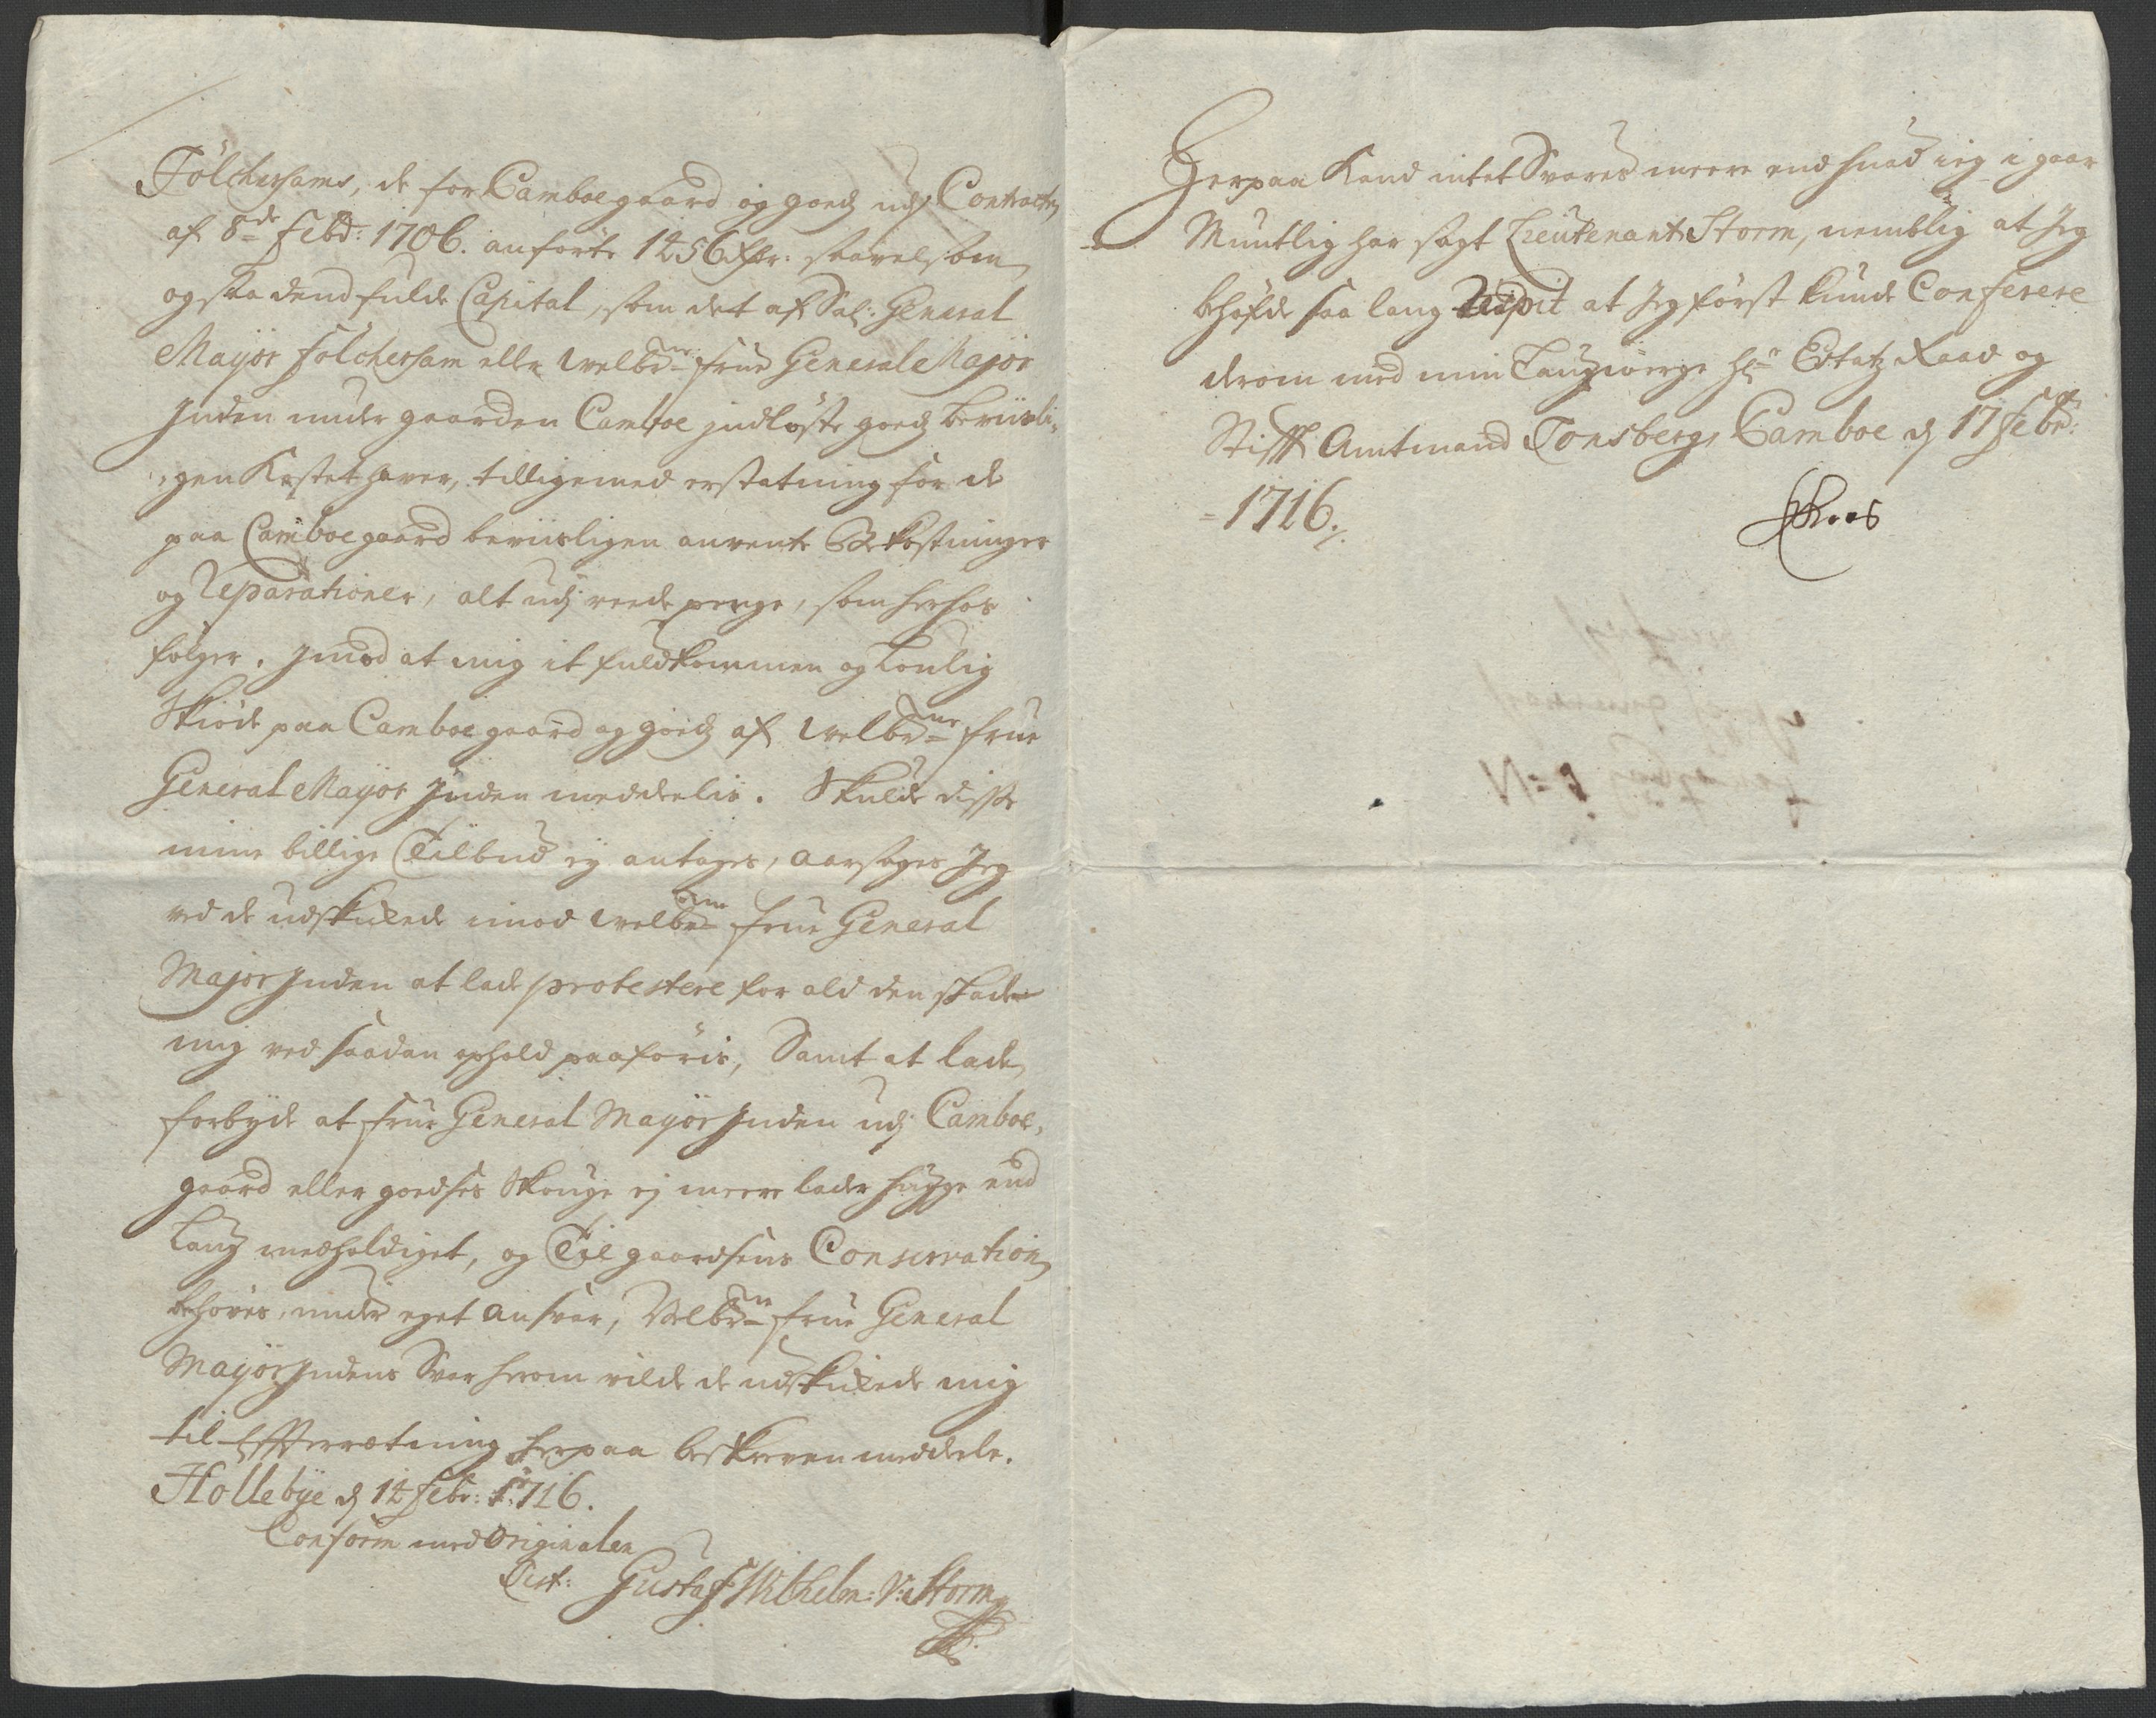 Fölchersams, de for Camboegaard og goeds udj Contracten
af 8de Febr: 1706. anförte 1256 Rdr: saavelsom
ogsaa dend fulde Capital, som det af Sal: General
Major Folchersam eller welbrne frue General Major
Inden under gaarden Camboe jndlöste goeds beviisli„
„gen Kostet haver, tilligemed erstatning for de
paa Camboegaard beviisligen anvente Bekostninger
og Reparationer, alt udj reede penge, som herhos
fölger. Imod at mig it fuldkommen og Lovlig
Skiöde paa Camboegaard og goeds af welbrne frue
General Major Inden meddeelis. Skulde disse
mine billige Tilbud ey antages, aarsages Jeg
ved de udskikede imod welbrne frue General
Major Inden at lade protestere for ald den skade
mig ved saadan ophold paaföris, Samt at lade
forbyde at frue General Major Inden udj Camboe„
gaard eller goedses Skouge ej meere lader hugge end
Laug medholdiget, og Til gaardsens Conservation
behöves, under eget ansvar, Velbrne frue General
Major Indens Svar herom vilde de udskikede mig
til Efterretning herpaa beskreven meddele.
Hollebye d 14 Febr: 1716.
Conform med Originalen
Test: Gustaf Wilhelm: V: Storm
Herpaa Kand intet Svares meere end hvad ieg i gaar
Mundtlig har sagt Lieutenant Storm, nemblig at Jeg
behöfde saa lang Respit at Jeg först kunde Conferere
derom med min Laugwerge Hr Etatz Raad og
Stiffts Amtmand Tonsberg, Camboe d 17 Febr:
1716.